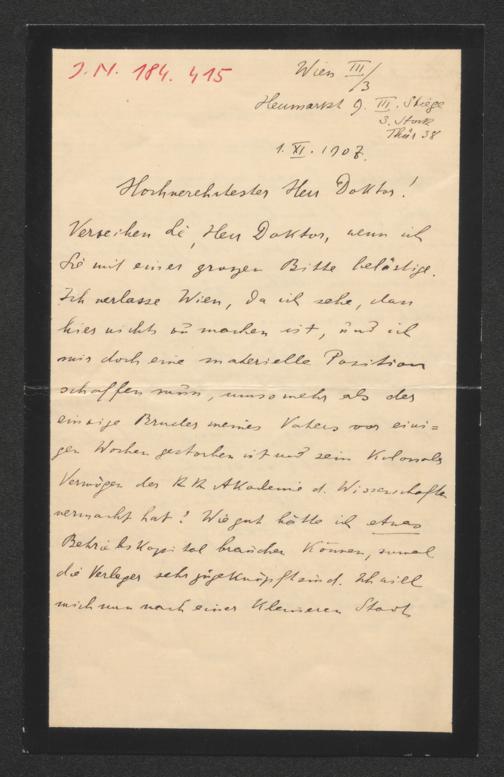 J. N. 184.415
Wien III/3
Heumarkt 9. III. Stiege
3. Stock
Thür 38
1. XI. 1907.
Hochverehrtester Herr Doktor!
Verzeihen Sie, Herr Doktor, wenn ich
Sie mit einer grossen Bitte belästige.
Ich verlasse Wien, da ich sehe, dass
hier nichts zu machen ist, und ich
mir doch eine materielle Position
schaffen muss, umsomehr als der
einzige Bruder meines Vaters vor eini=
gen Wochen gestorben ist und sein Kolossal-
Vermögen der KK Akademie d. Wissenschaften
vermacht hat! Wie gut hätte ich etwas
Betriebskapital brauchen können, zumal
die Verleger sehr zugeknöpft sind. Ich will
mich nun nach einer kleineren Stadt